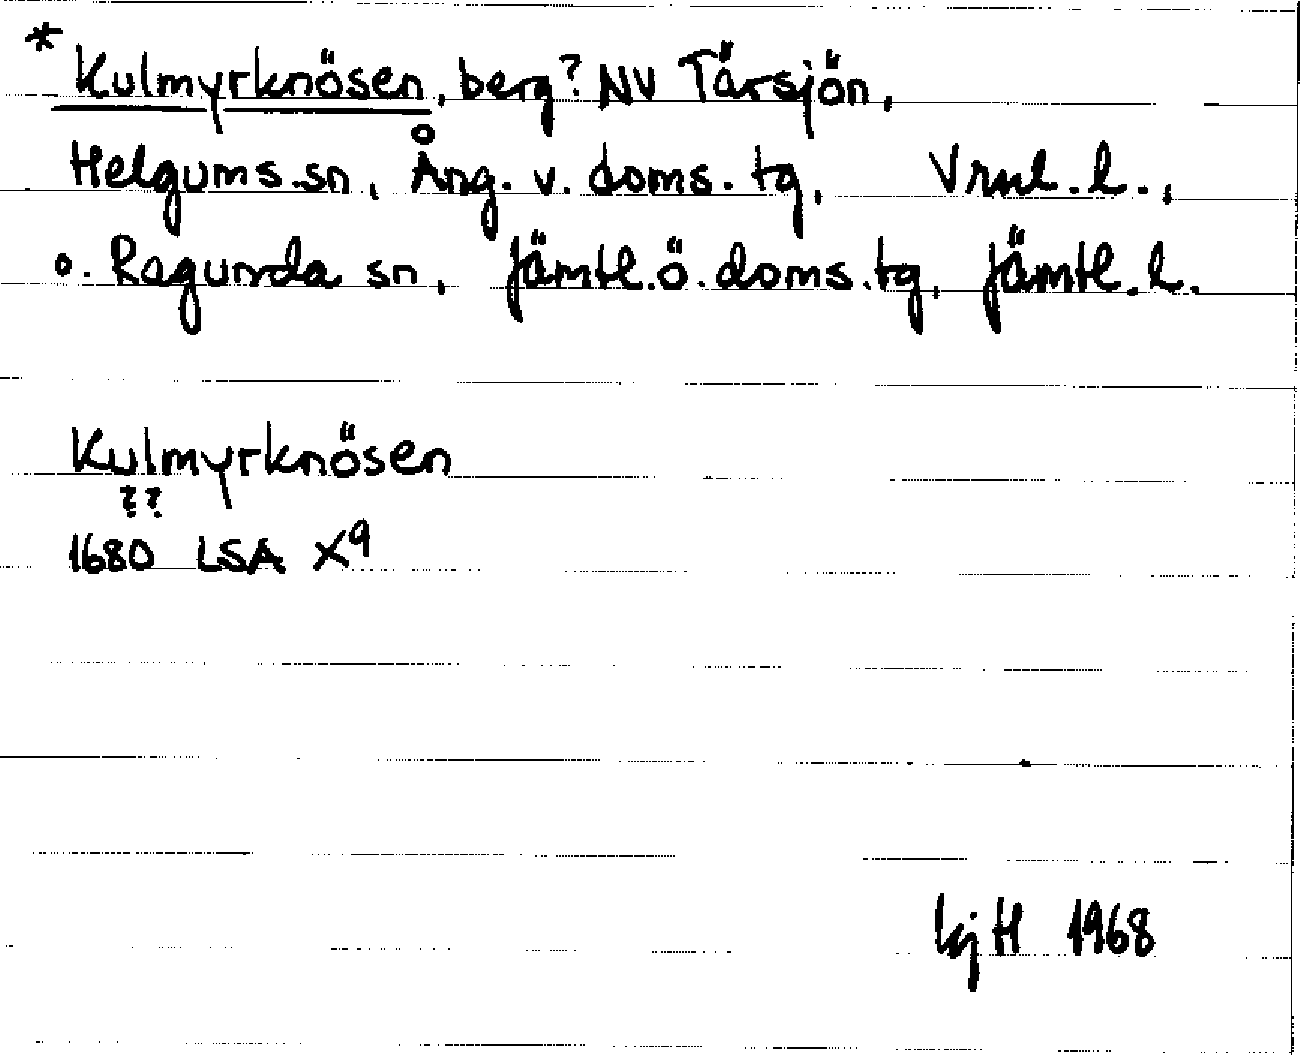 * Kulmyrknösen, berg? NV Tärsjön,
Helgums sn, Ång. v. doms. tg, Vrnl. l.,
o. Ragunda sn, Jämtl. ö. doms. tg, Jämtl. l.
Kulmyrknösen
??
1680 LSA X9
LjH 1968